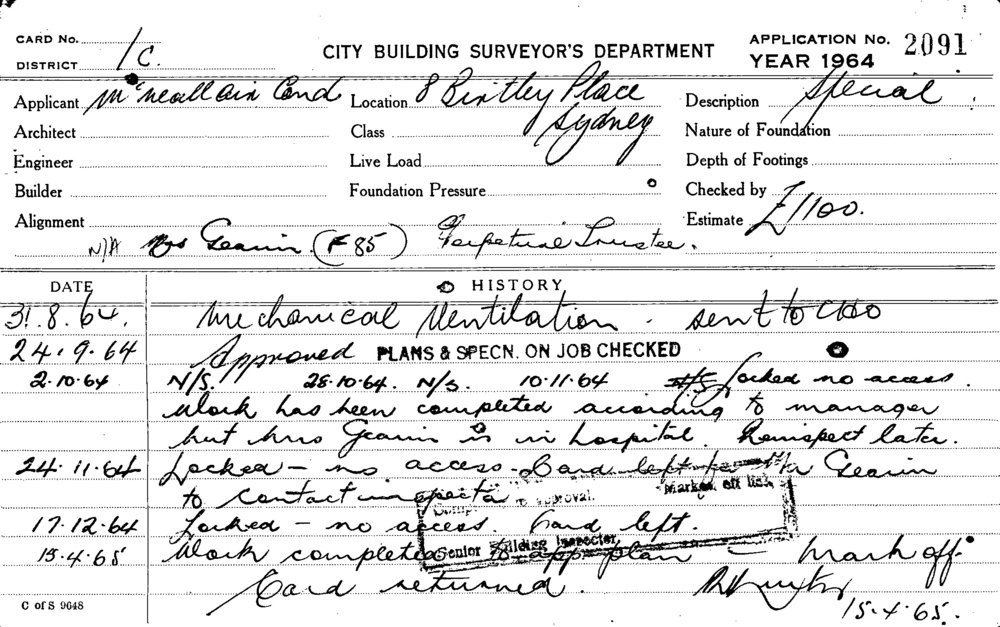 CARD No.
DISTRICT 1C.
CITY BUILDING SURVEYOR'S DEPARTMENT
APPLICATION No. 2091
YEAR 1964
Applicant Location 8 Bintley Place Description Special
Architect Class Sydney Nature of Foundation
Engineer Live Load Depth of Footings
Builder Foundation Pressure Checked by
Alignment Estimate £1100.
N/A Mrs Gearin (F 85) Perpetual Trustee.
DATE HISTORY
31.8.64. Mechanical Ventilation. sent to CHO
24.9.64 Approved PLANS & SPECN. ON JOB CHECKED
2.10.64 N/S. 28.10.64. N/S. 10.11.64 Locked no access.
Work has been completed according to manager
but Mrs Gearin is in hospital. Reinspect later.
24.11.64 Locked - no access - Card left for Gearin
to contact inspector
approval. Marked off link
17.12.64 Locked - no access. Card left.
Senior Building Inspector
15.4.65 Work completed to app plan - Mark off.
Card returned.
15.4.65.
C of S 9648